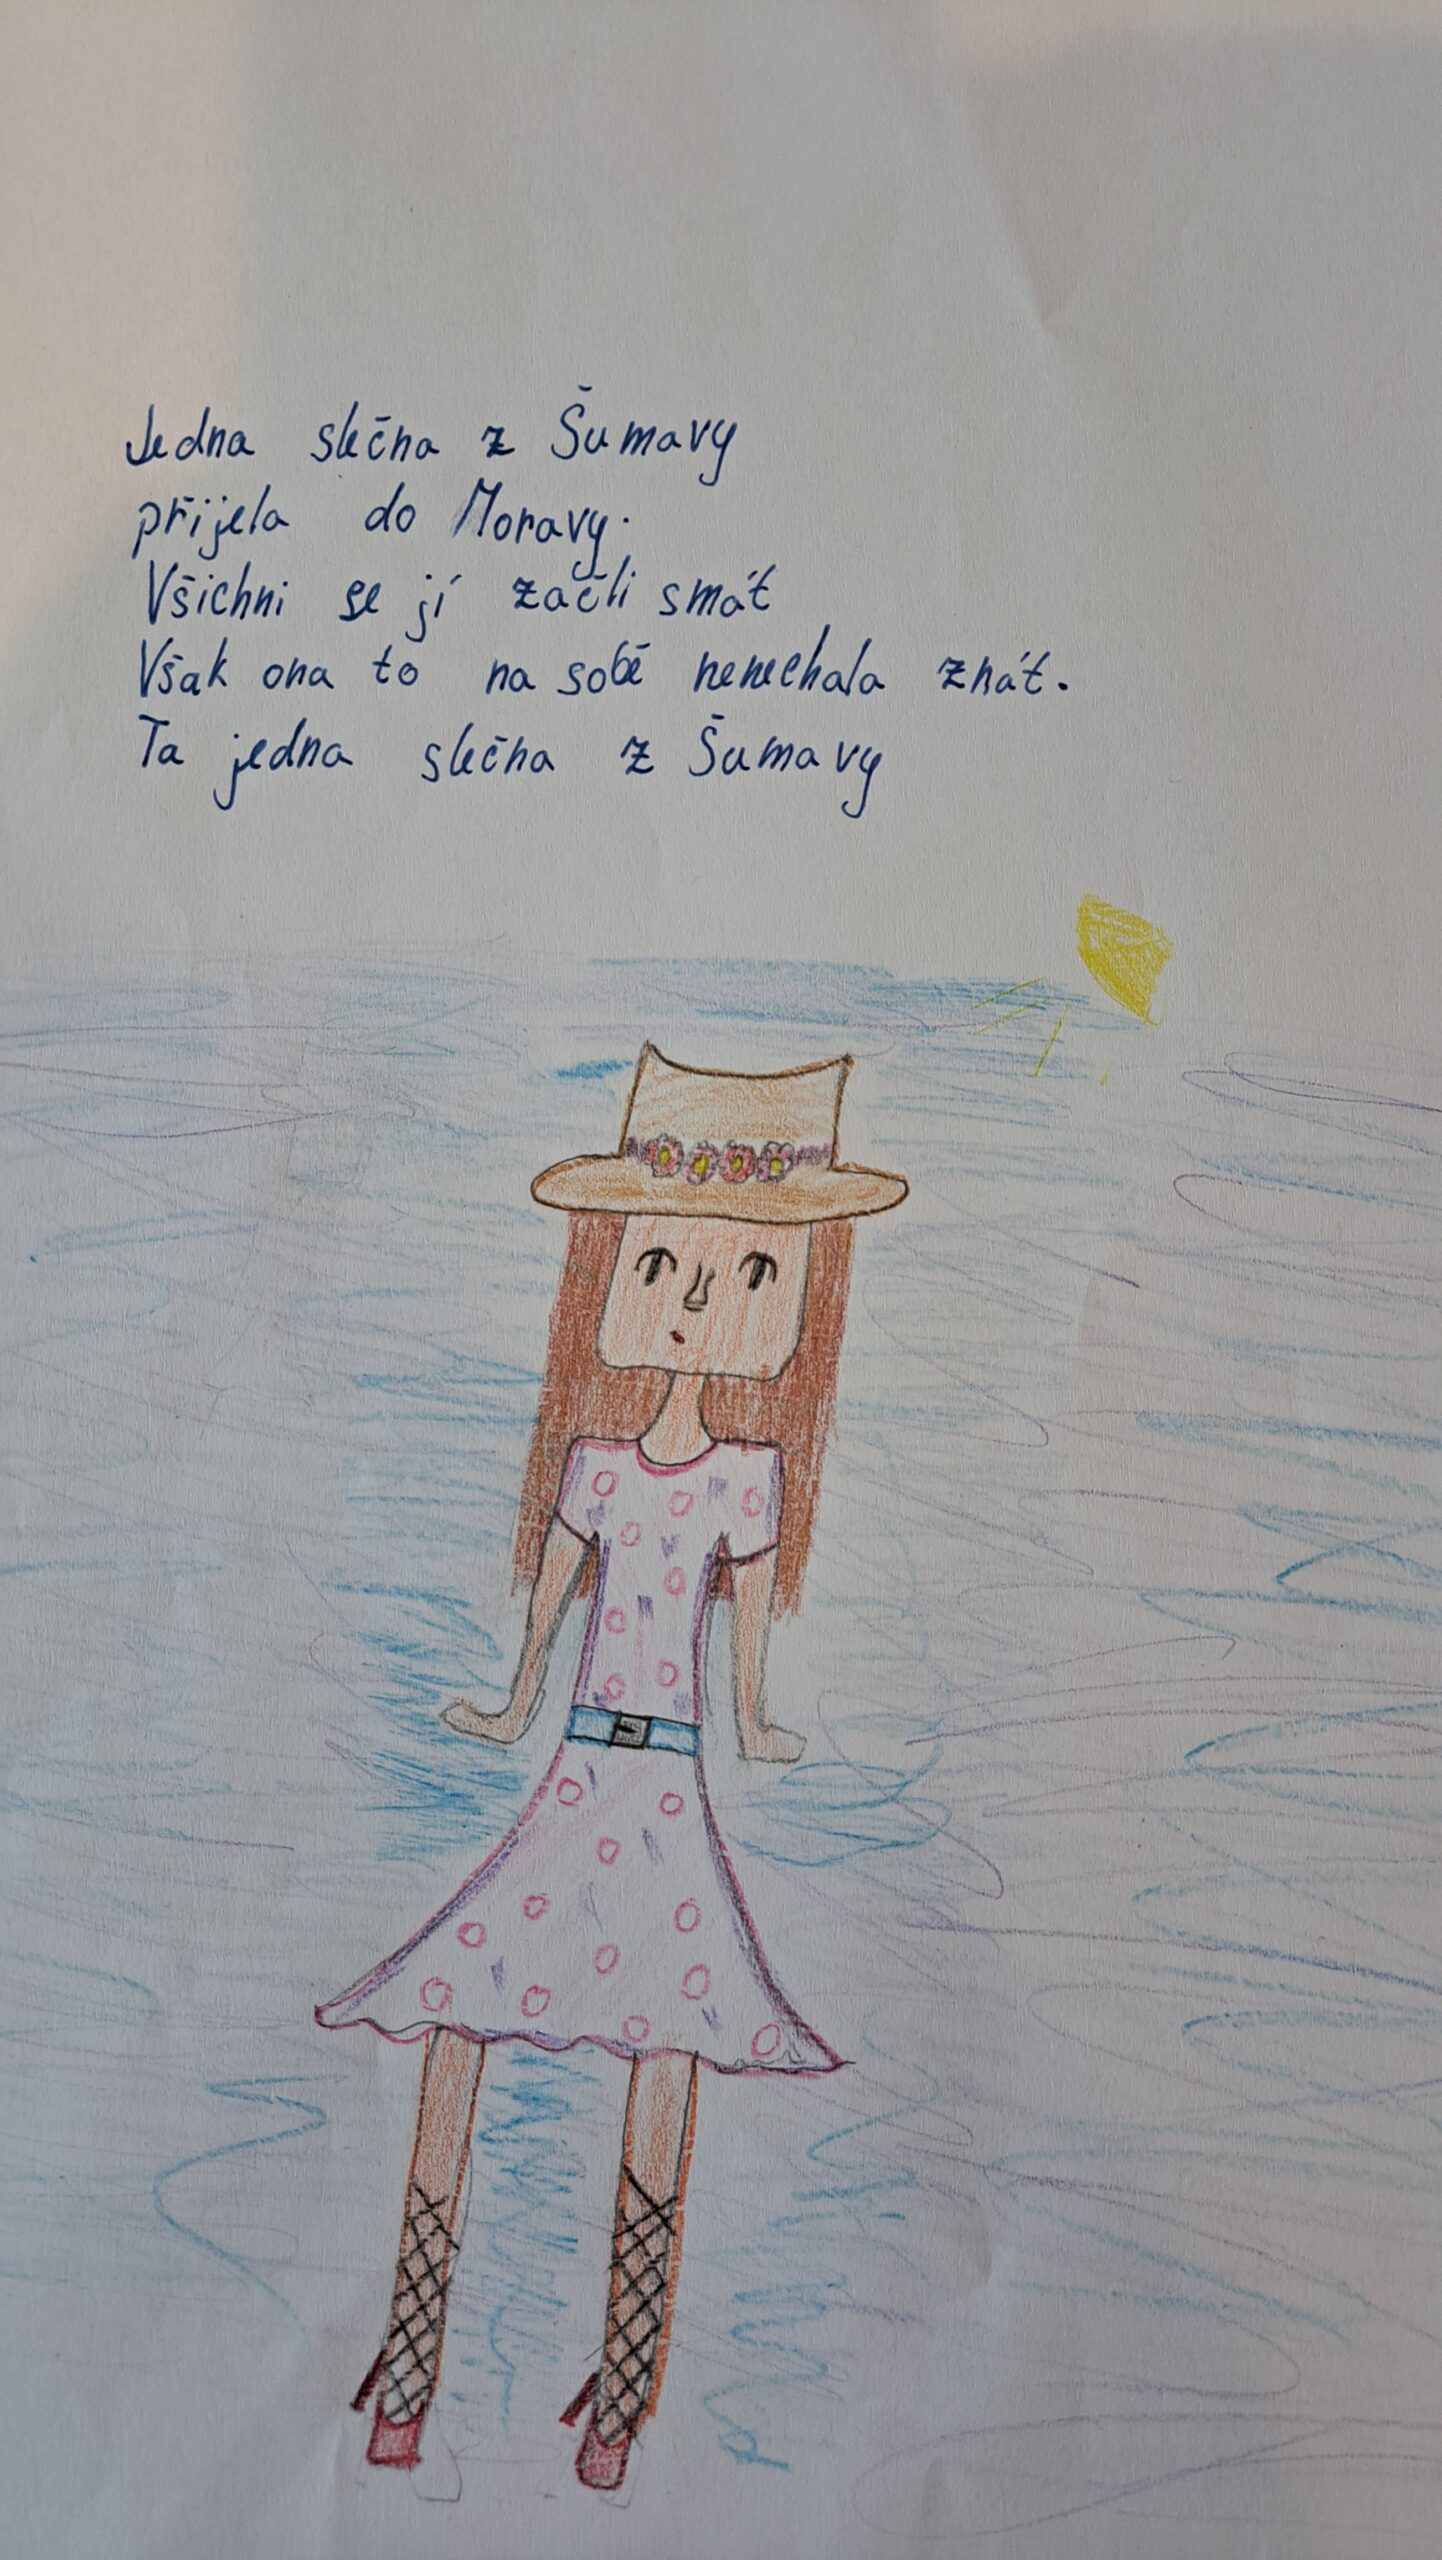 Jedna slečna z Šumavy
přijela do Moravy.
Všichni se jí začli smát
Však ona to na sobě nenechala znát.
Ta jedna slečna z Šumavy